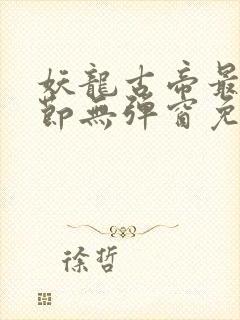 妖龍古帝最
節無彈窗免
徐哲